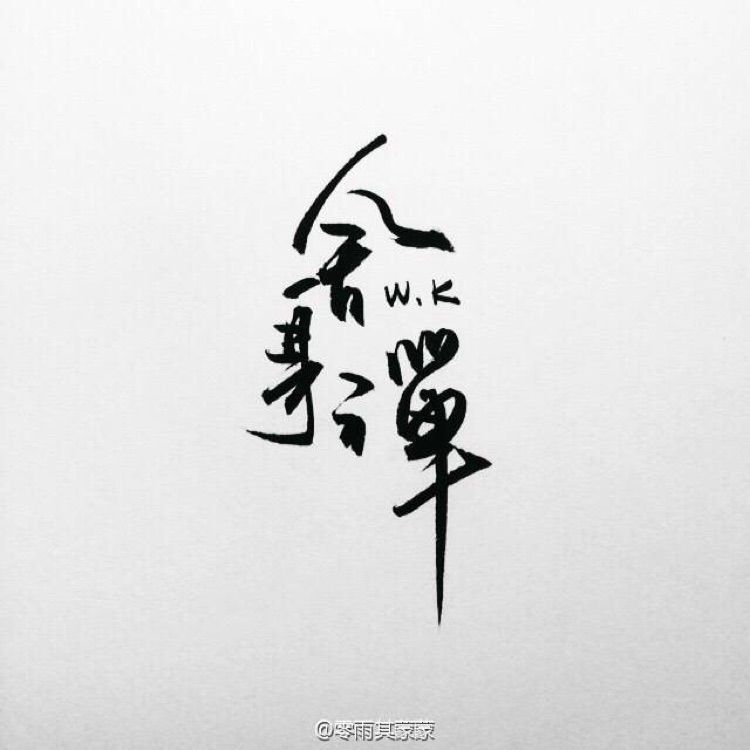 舍
W.K
單
@零雨其蒙蒙